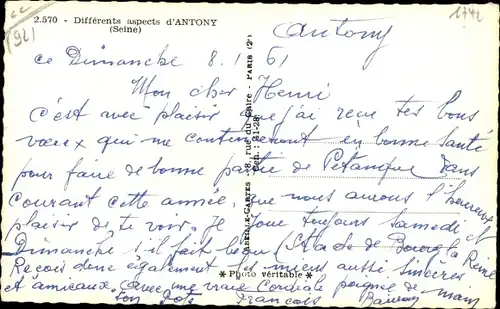 2.570 - Différents aspects d'ANTONY
(Seine)
(92)
1742
Antony
ce Dimanche 8.1.61
Mon cher Henri
c'est avec plaisir que j'ai reçu tes bons
vœux qui me en bonne santé
pour faire de bonne partie de Pétanque dans
courant cette année, que nous aurons l'heureux
plaisir de te voir. Je joue toujours Samedi et
Dimanche s'il fait beau (Stade de Bourg la Reine
Reçois donc également les miens aussi sincères
et amicaux avec une vraie cordiale poignée de main
ton pote François
ABEILLE-CARTES - 8, rue du Caire - PARIS (2e)
Cen.: 21-28
* Photo véritable *